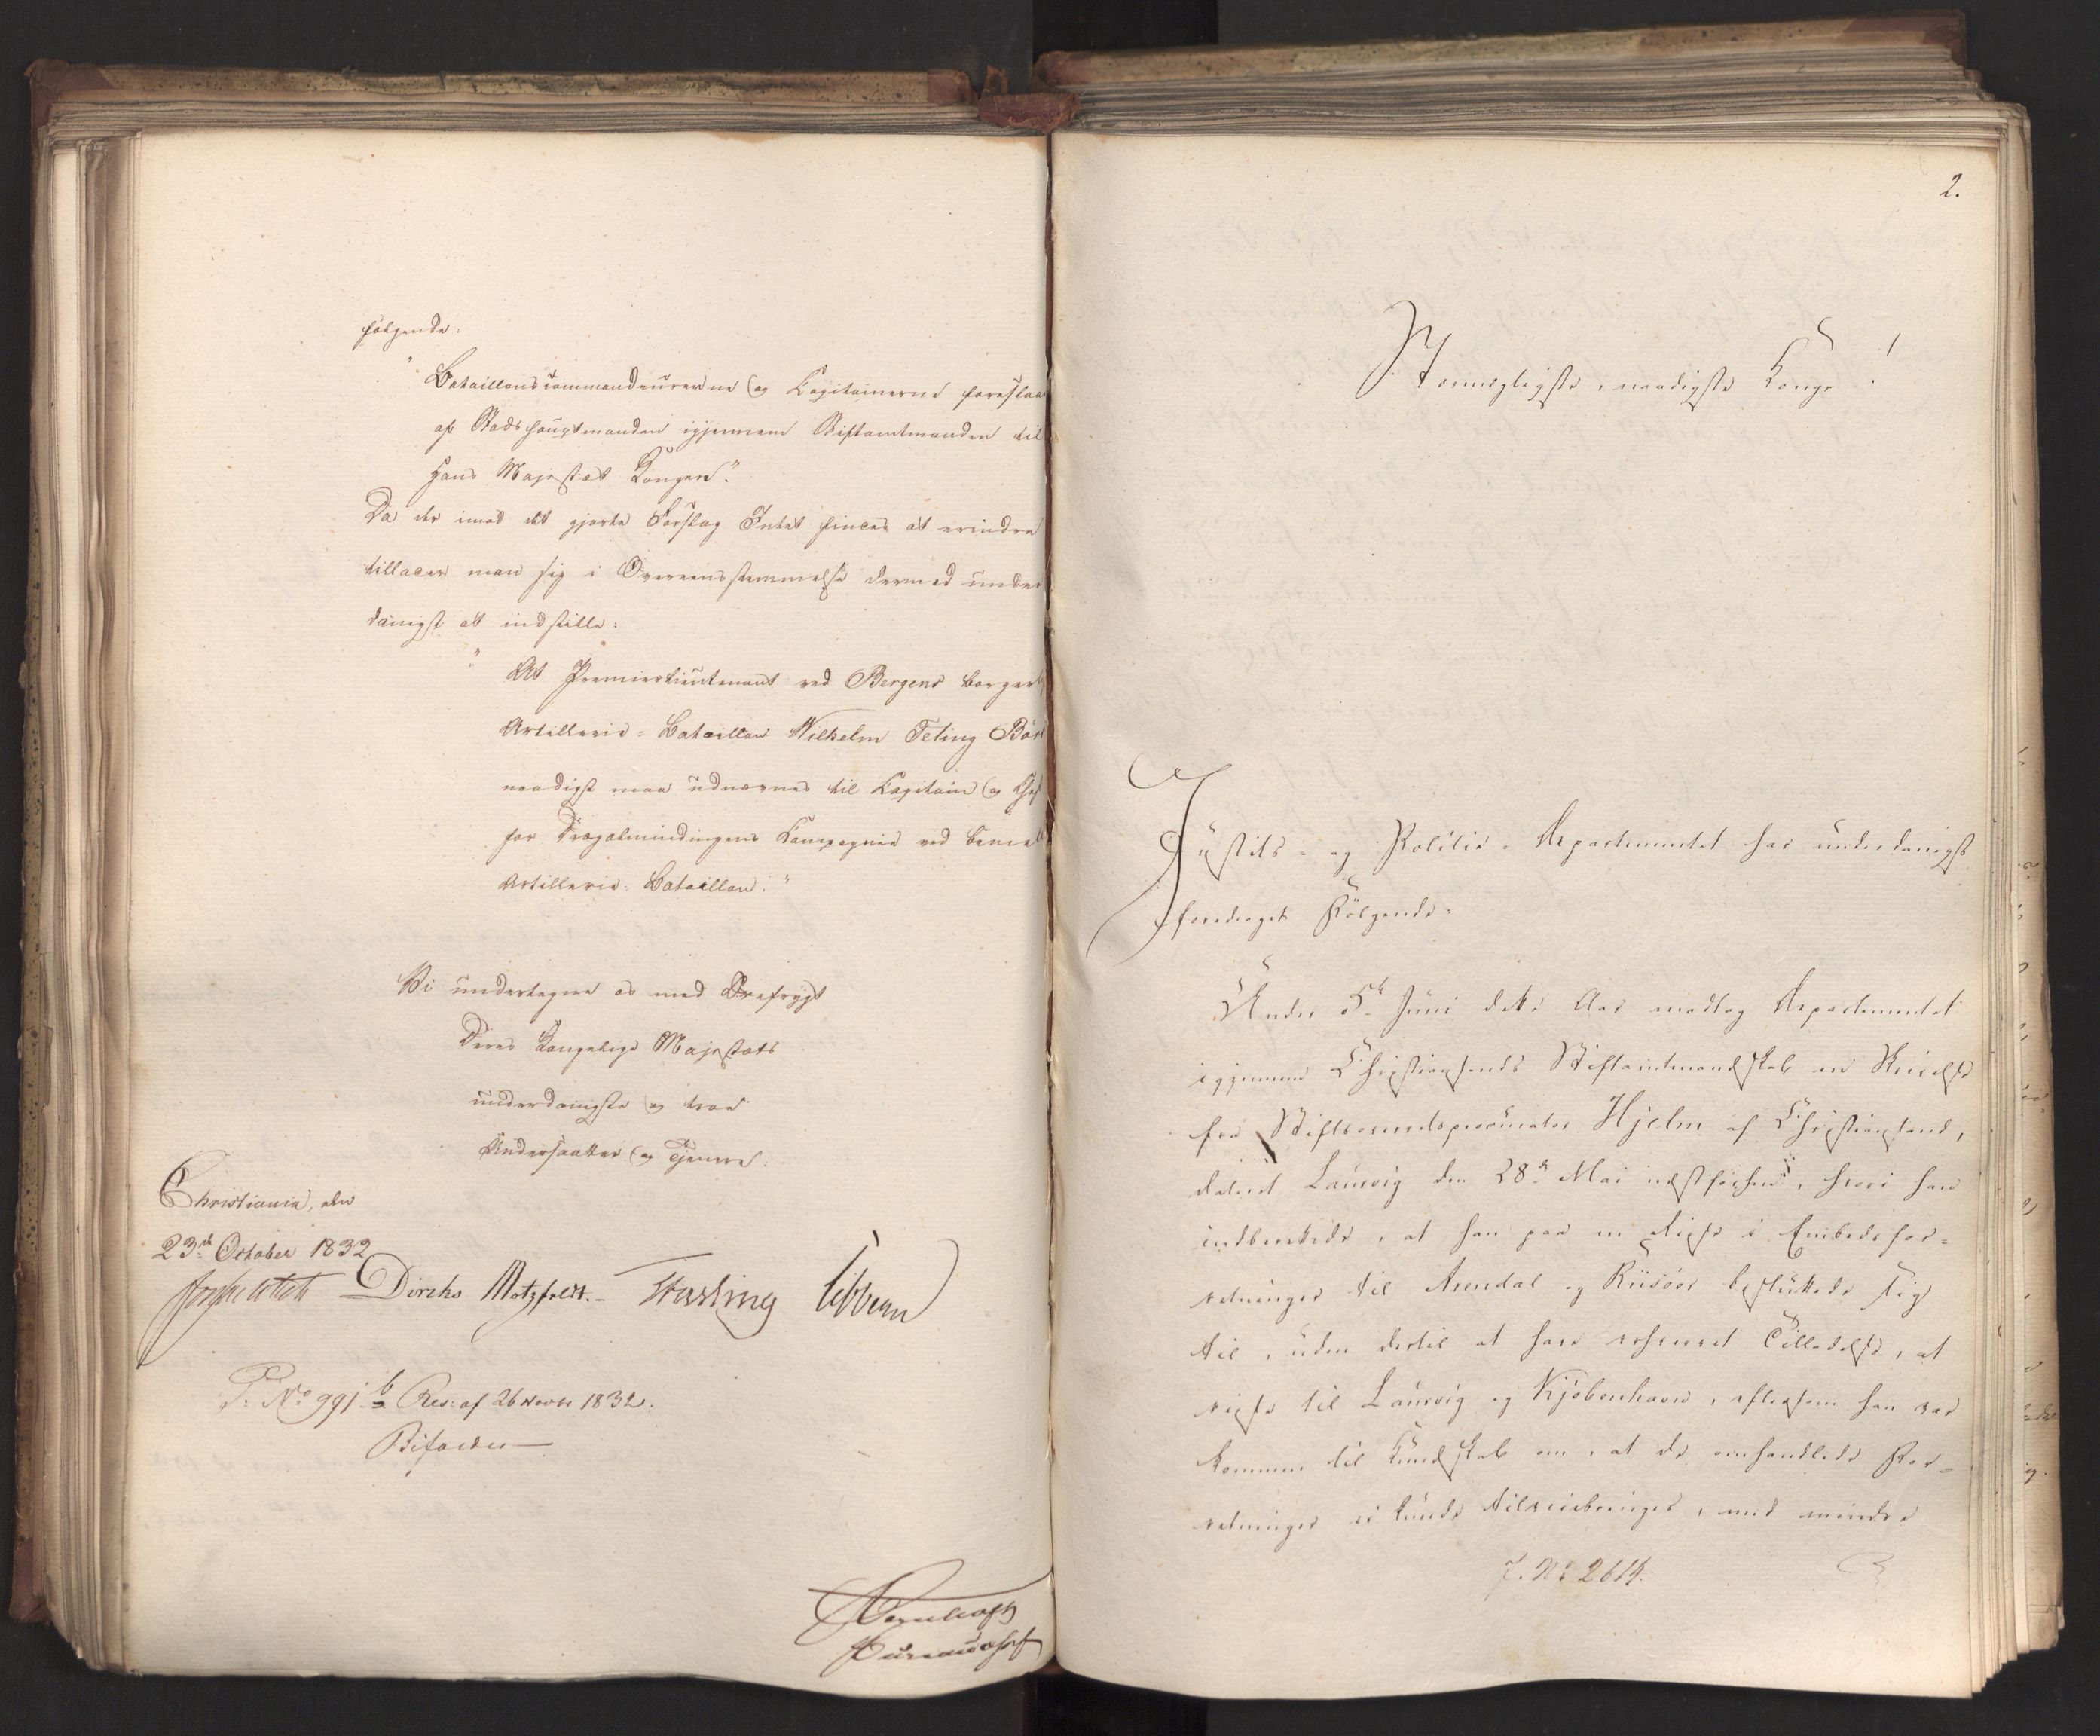 følgende:
"Bataillonscommandeurerne og Capitainerne foreslaaes
af Stadshauptmanden igjennem Stiftamtmanden til
Hans Majestæt Kongen".
Da der imod det gjorte Forslag Intet findes at erindre
tillader man sig i Overeensstemmelse dermed under-
danigst at indstille:
"At Premierlieutenant ved Bergens borgerl
Artillerie-Bataillon Wilhelm Teting Bö
naadigst maa udnævnes til Capitain og Chef
for Dræggealmindingens Compagnie ved bemel
Artillerie-Bataillon."
Vi undertegne os med Ærefrygt
Deres Kongelige Majestæts
underdanigste og troe
Undersaatter og Tjenere.
Christiania, den
23de October 1832
Diriks Motzfeldt. Fasting Vibe
P: No 991 b Res: af 26 Novbr 1832.
Bifaldes
2.
Stormægtigste, naadigste Konge!
Justits- og Politie-Departementet har underdanigst
foredraget Følgende:
Under 5te Juni dette Aar modtog Departementet
igjennem Christiansands Stiftamtmandskab en Skrivelse
fra Stiftsoverretsprocurator Hjelm af Christiansand,
dateret Laurvig den 28de Mai næstforhen, hvori han
indberettede, at han paa en Reise i Embedsfor-
retninger til Arendal og Riisöer besluttede sig
til, uden dertil at have erhvervet Tilladelse, at
reise til Laurvig og Kjöbenhavn, eftersom han var
kommen til Kundskab om, at de omhandlede For-
retninger ei kunde tilveiebringes, med mindre
J. No 2614.